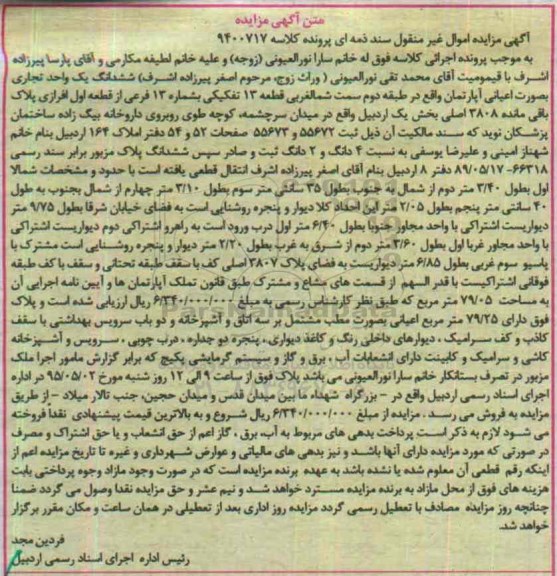 متن آگهی مزایده
آگهی مزایده اموال غیر منقول سند ذمه ای پرونده کلاسه ۹۴۰۰۷۱۷
به موجب پرونده اجرائی کلاسه فوق له خانم سارا نورالعیونی (زوجه) و علیه خانم لطیفه مکارمی و آقای پارسا پیرزاده
اشرف با قیمومیت آقای محمد تقی نورالعیونی ( وراث زوج، مرحوم اصغر پیرزاده اشرف) ششدانگ یک واحد تجاری
بصورت اعیانی آپارتمان واقع در طبقه دوم سمت شمالغربی قطعه ۱۳ تفکیکی بشماره ۱۳ فرعی از قطعه اول افرازی پلاک
باقی مانده ۳۸۰۸ اصلی بخش یک اردبیل واقع در میدان سرچشمه، کوچه طوی روبروی داروخانه بیگ زاده ساختمان
پزشکان نوید که سند مالکیت آن ذیل ثبت ۵۵۶۷۲ و ۵۵۶۷۳ صفحات ۵۲ و ۵۴ دفتر املاک ۱۶۴ اردبیل بنام خانم
شهناز امینی و علیرضا یوسفی به نسبت ۴ دانگ و ۲ دانگ ثبت و صادر سپس ششدانگ پلاک مزبور برابر سند رسمی
۶۶۳۱۸- ۸۹/۰۵/۱۷ دفتر ۸ اردبیل بنام آقای اصغر پیرزاده اشرف انتقال قطعی یافته است با حدود و مشخصات شمالا
اول بطول ۳/۴۰ متر دوم از شمال به جنوب بطول ۳۵ سانتی متر سوم بطول ۳/۱۰ متر چهارم از شمال بجنوب به طول
۴۰ سانتی متر پنجم بطول ۲/۰۵ متر این احداد کلا دیوار و پنجره روشنایی است به فضای خیابان شرقا بطول ۹/۷۵ متر
دیواریست اشتراکی با واحد مجاور جنوبا بطول ۶/۴۰ متر اول درب ورود است به راهرو اشتراکی دوم دیواریست اشتراکی
با واحد مجاور غربا اول بطول ۳/۶۰ متر دوم از شرق به غرب بطول ۲/۲۰ متر دیوار و پنجره روشنایی است مشترک با
پاسیو سوم غربی بطول ۶/۸۵ متر دیواریست به فضای پلاک ۳۸۰۷ اصلی کف با سقف طبقه تحتانی و سقف با کف طبقه
فوقانی اشتراکیست با قدر السهم از قسمت های مشاع و مشترک طبق قانون تملک آپارتمان ها و آیین نامه اجرایی آن
به مساحت ۷۹/۰۵ متر مربع که طبق نظر کارشناس رسمی به مبلغ ۶/۳۴۰/۰۰۰/۰۰۰ ریال ارزیابی شده است و پلاک
فوق دارای ۷۹/۲۵ متر مربع اعیانی بصورت مطب مشتمل بر سه اتاق و آشپزخانه و دو باب سرویس بهداشتی با سقف
کاذب و کف سرامیک ، دیوارهای داخلی رنگ و کاغذ دیواری، پنجره دو جداره ، درب چوبی ، سرویس و آشپزخانه
کاشی و سرامیک و کابینت دارای انشعابات آب ، برق و گاز و سیستم گرمایشی پکیج که برابر گزارش مامور اجرا ملک
مزبور در تصرف بستانکار خانم سارا نورالعیونی می باشد پلاک فوق از ساعت ۹ الی ۱۲ روز شنبه مورخ ۹۵/۰۵/۰۲ در اداره
اجرای اسناد رسمی اردبیل واقع در - بزرگراه شهداء ما بین میدان قدس و میدان حجین، جنب تالار میلاد - از طریق
مزایده به فروش می رسد . مزایده از مبلغ ۶/۳۴۰/۰۰۰/۰۰۰ ریال شروع و به بالاترین قیمت پیشنهادی نقدا فروخته
می شود لازم به ذکر است، پرداخت بدهی های مربوط به آب، برق ، گاز اعم از حق انشعاب و یا حق اشتراک و مصرف
در صورتی که مورد مزایده دارای آنها باشد و نیز بدهی های مالیاتی و عوارض شهرداری و غیره تا تاریخ مزایده اعم از
اینکه رقم قطعی آن معلوم شده یا نشده باشد به عهده برنده مزایده است که در صورت وجود مازاد وجوه پرداختی بابت
هزینه های فوق از محل مازاد به برنده مزایده مسترد خواهد شد و نیم عشر و حق مزایده نقدا وصول می گردد ضمنا
چنانچه روز مزایده مصادف با تعطیل رسمی گردد مزایده روز اداری بعد از تعطیلی در همان ساعت و مکان مقرر برگزار
خواهد شد.
فردین مجد
رئیس اداره اجرای اسناد رسمی اردبیل